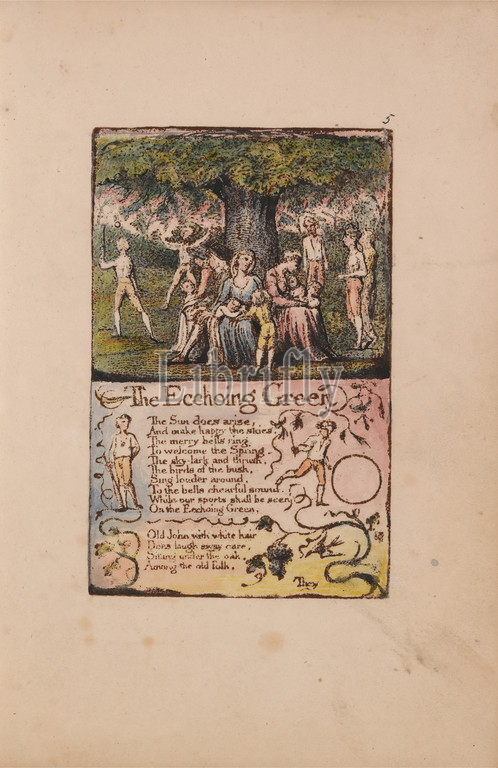 5
Librifly
The Ecchoing Green
The Sun does arise,
And make happy the skies.
The merry bells ring,
To welcome the Spring.
The sky-lark and thrush,
The birds of the bush,
Sing louder around,
To the bells chearful sound.
While our sports shall be seen
On the Ecchoing Green.
Old John with white hair
Does laugh away care,
Sitting under the oak,
Among the old folk,
They